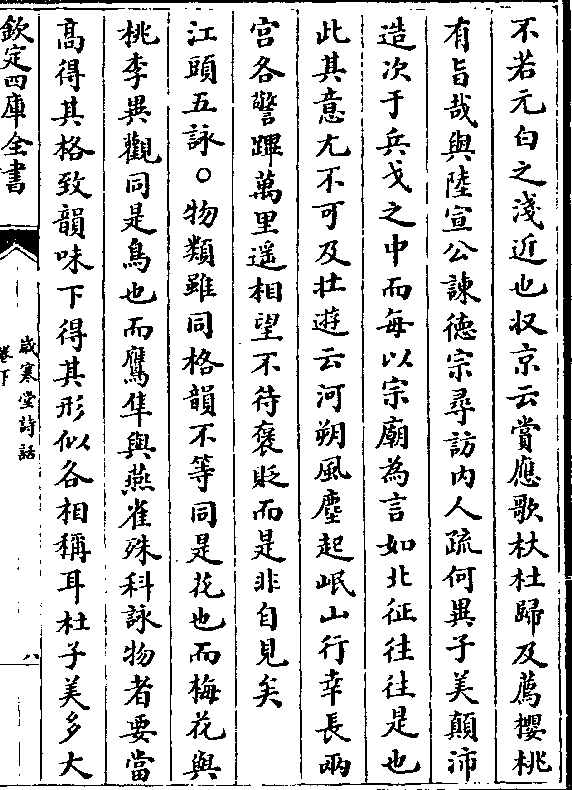 不若元白之淺近也収京云賞應歌杕杜歸及薦櫻桃
有旨哉與陸宣公諫德宗尋訪内人疏何異子美顛沛
造次于兵戈之中而每以宗廟為言如北征往往是也
此其意尤不可及壯遊云河朔風塵起岷山行幸長兩
宫各警蹕萬里遥相望不待襃貶而是非自見矣
江頭五詠○物類雖同格韻不等同是花也而梅花與
桃李異觀同是鳥也而鷹隼與燕雀殊科詠物者要當
高得其格致韻味下得其形似各相稱耳杜子美多大
欽定四庫全書
歲寒堂詩話
卷下
八